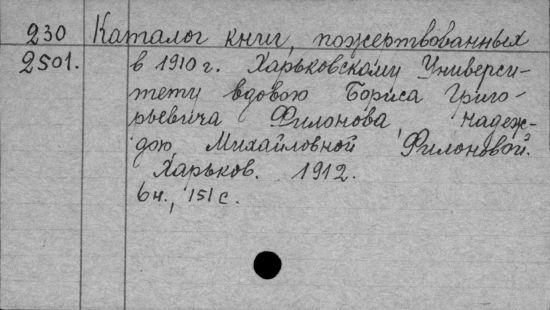 230 Каталог книг, пожертвованных
2501. в 1910 г. Харьковскому Универси-
тету вдовою Бориса Григо-
рьевича Филонова, Надеж-
дою Михайловной Филоновой.
Харьков. 1912.
6н., 151 с.